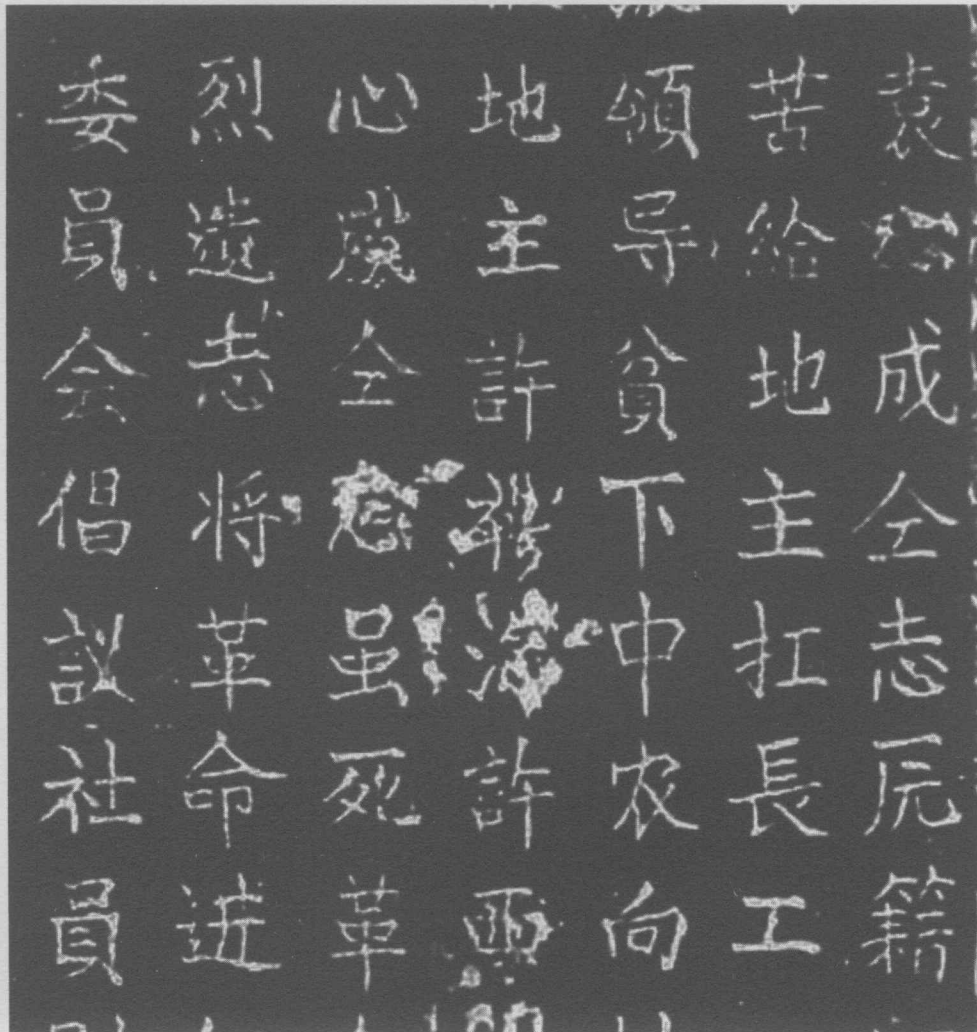 袁成仝志原籍
苦給地主扛長工
領导貧下中农向
地主許許
心仝虽死革
烈遗志将革命进
委員会倡議社員